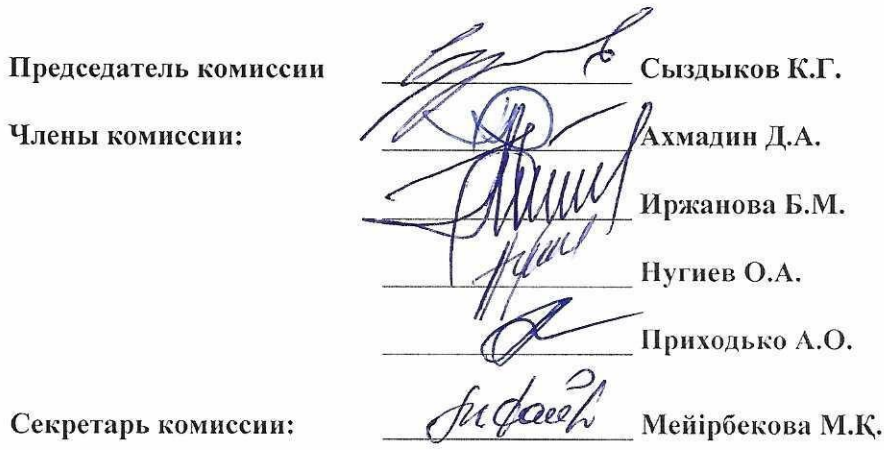 Председатель комиссии Сыздыков К.Г.
Члены комиссии: Ахмадин Д.А.
Иржанова Б.М.
Нугиев О.А.
Приходько А.О.
Секретарь комиссии: Мейірбекова М.Қ.